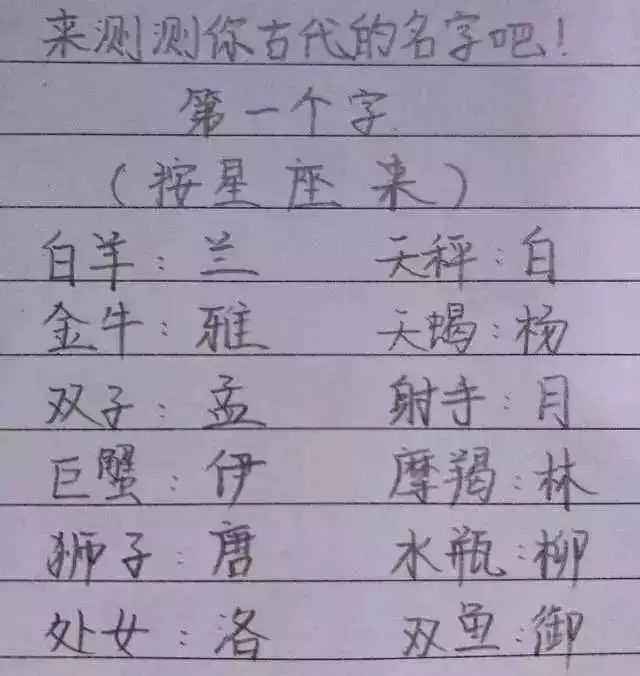 来测测你古代的名字吧！
第一个字
（按星座来）
白羊：兰 天秤：白
金牛：雅 天蝎：杨
双子：孟 射手：月
巨蟹：伊 摩羯：林
狮子：唐 水瓶：柳
处女：洛 双鱼：御